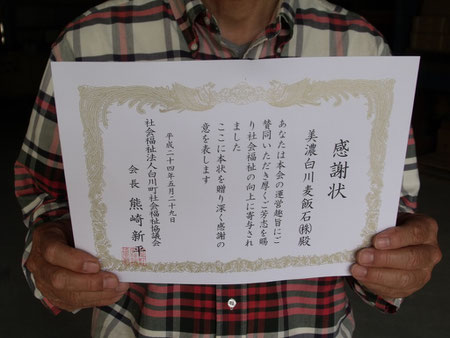 感謝状
美濃白川麦飯石㈱殿
あなたは本会の運営趣旨にご
賛同いただき厚くご芳志を賜
り社会福祉の向上に寄与され
ました
ここに本状を贈り深く感謝の
意を表します
平成二十四年五月二十九日
社会福祉法人白川町社会福祉協議会
会長 熊崎新平